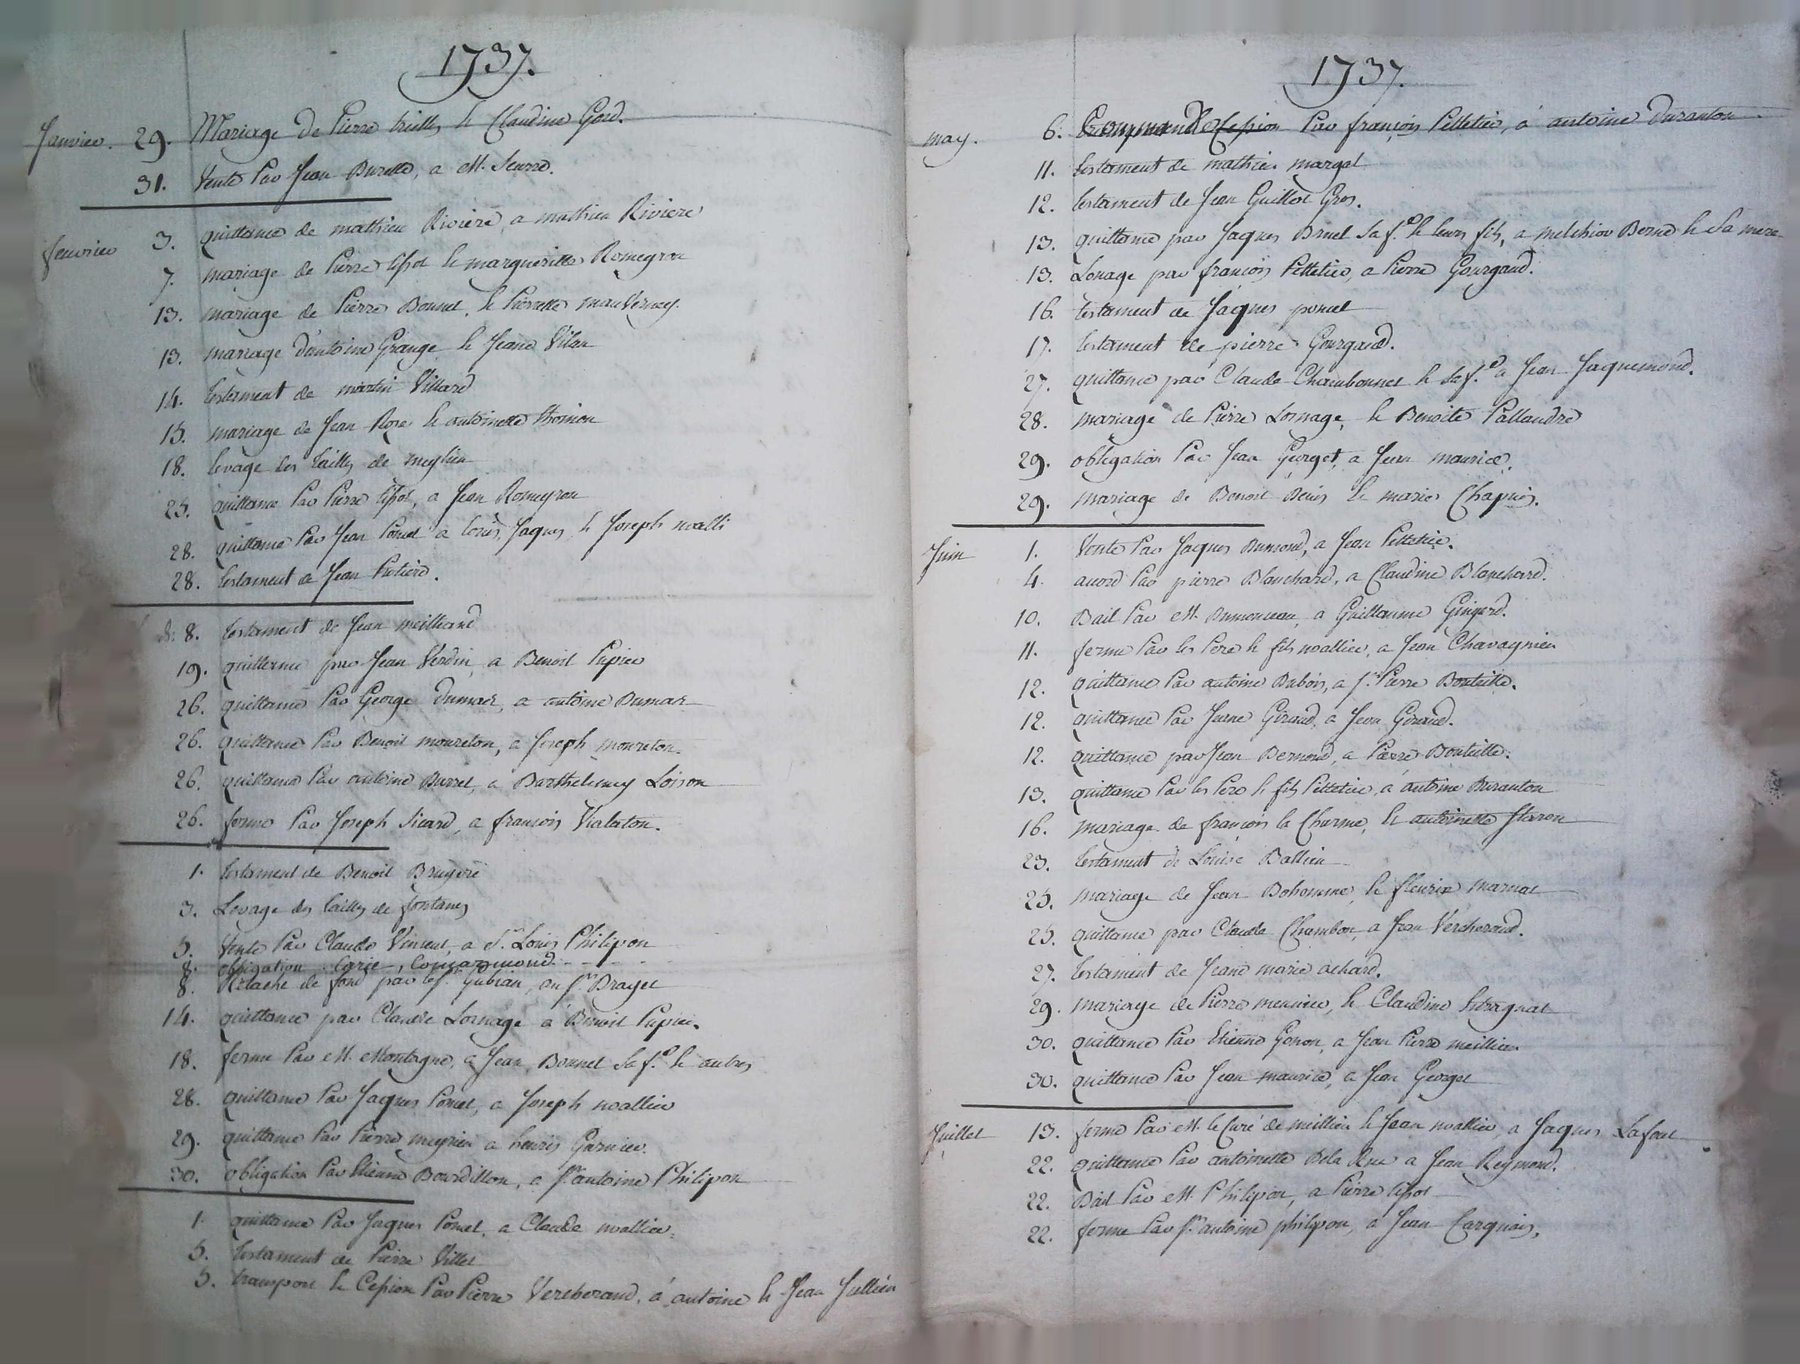 1737.
Janvier. 29. Mariage de Pierre & Claudine Gord.
31. Vente Par Jean Burette, a M. Seurre.
feuvrier 3. quittance de mathieu Riviere, a mathieu Riviere
7. mariage de Pierre tissot & margueritte Romeyron
13. mariage de Pierre Bonnet, & Pierrette mauvernay
13. mariage d'antoine Grange, & Jeane Vilar
14. testament de martin Villard
15. mariage de Jean Roze & antoinette thoinon
18. levage des tailles de meylieu
25. quittance Par Pierre tissot, a Jean Romeyron
28. quittance Par Jean Poncet a Louis, Jaques, & Joseph
28. testament de Jean
8. testament de Jean meilland
19. quittance par Jean Verdin, a Benoit Pupier
26. quittance Par George Dumas, a antoine Dumas
26. quittance Par Benoit moureton, a Joseph moureton
26. quittance Par antoine Burret, a Barthelemy Loison
26. ferme Par Joseph Sicard, a françois Vialaton.
1. testament de Benoit Brugere
3. Levage des tailles de fontanes
5. Vente Par Claude Vincent, a Sr. Louis Philipon
8. obligation
8. Relache de fond par le Sr. Gubian, au Sr. Brayet
14. quittance par Claude Lornage a Benoit Pupier.
18. ferme Par M. Montagne, a Jean Bonnet Sa fe. & autres
28. quittance Par Jaques Poncet, a Joseph noallier
29. quittance Par Pierre meyrieu a henris Garnier
30. obligation Par Etienne Bourdillon, a Sr. antoine Philipon
1. quittance Par Jaques Poncet, a Claude noallier.
5. testament de Pierre Villet
5. transport & Cession Par Pierre Vercherand, á antoine & Jean Jullien
1737.
may. 6. Cession Par françois Pelletier, á antoine Duranton
11. testament de mathieu margot
12. testament de Jean Guillot Gros.
13. quittance par Jaques Bruel Sa fe. & leurs fils, a melchior Bernd & Sa mere
13. Louage par françois Pelletier, a Pierre Gourgaud.
16. testament de Jaques poncet
17. testament de pierre Gourgaud.
27. quittance par Claude Chambonnet & Sa fe. a Jean Jaquemond.
28. mariage de Pierre Lornage, & Benoite Pallandre
29. obligation Par Jean Georget, a Jean maurice.
29. mariage de Benoit Denis & marie Chapuis.
Juin 1. Vente Par Jaques Dumond, a Jean Pelletier.
4. acord Par pierre Blanchard, a Claudine Blanchard.
10. Bail Par M. Dumonceau, a Guillaume Gingard.
11. ferme Par les Pere & fils noallier, a Jean Chavagnieu
12. quittance Par antoine Dubois, a Sr. Pierre Bouteille.
12. quittance Par Jeane Giraud, a Jean Giraud.
12. quittance par Jean Bernond, a Pierre Bouteille.
13. quittance Par les Pere & fils Pelletier, a antoine Duranton
16. mariage de françois la Charme, & antoinette Staron
23. testament de Louise Ballieu
25. mariage de Jean Bohomme, & fleurie marnat
25. quittance par Claude Chambon, a Jean Vercherand.
27. testament de Jeane marie achard.
29. mariage de Pierre meunier, & Claudine
30. quittance Par Etienne Gonon, a Jean Pierre meillier
30. quittance Par Jean maurice, a Jean Georget
Juillet 13. ferme Par M. le Curé de meillieu & Jean noallier, a Jaques Lafont
22. quittance Par antoinette Dela Rue a Jean Reymond.
22. Bail Par M. Philipon, a Pierre tissot
22. ferme Par Sr. antoine philipon, a Jean Carquais.